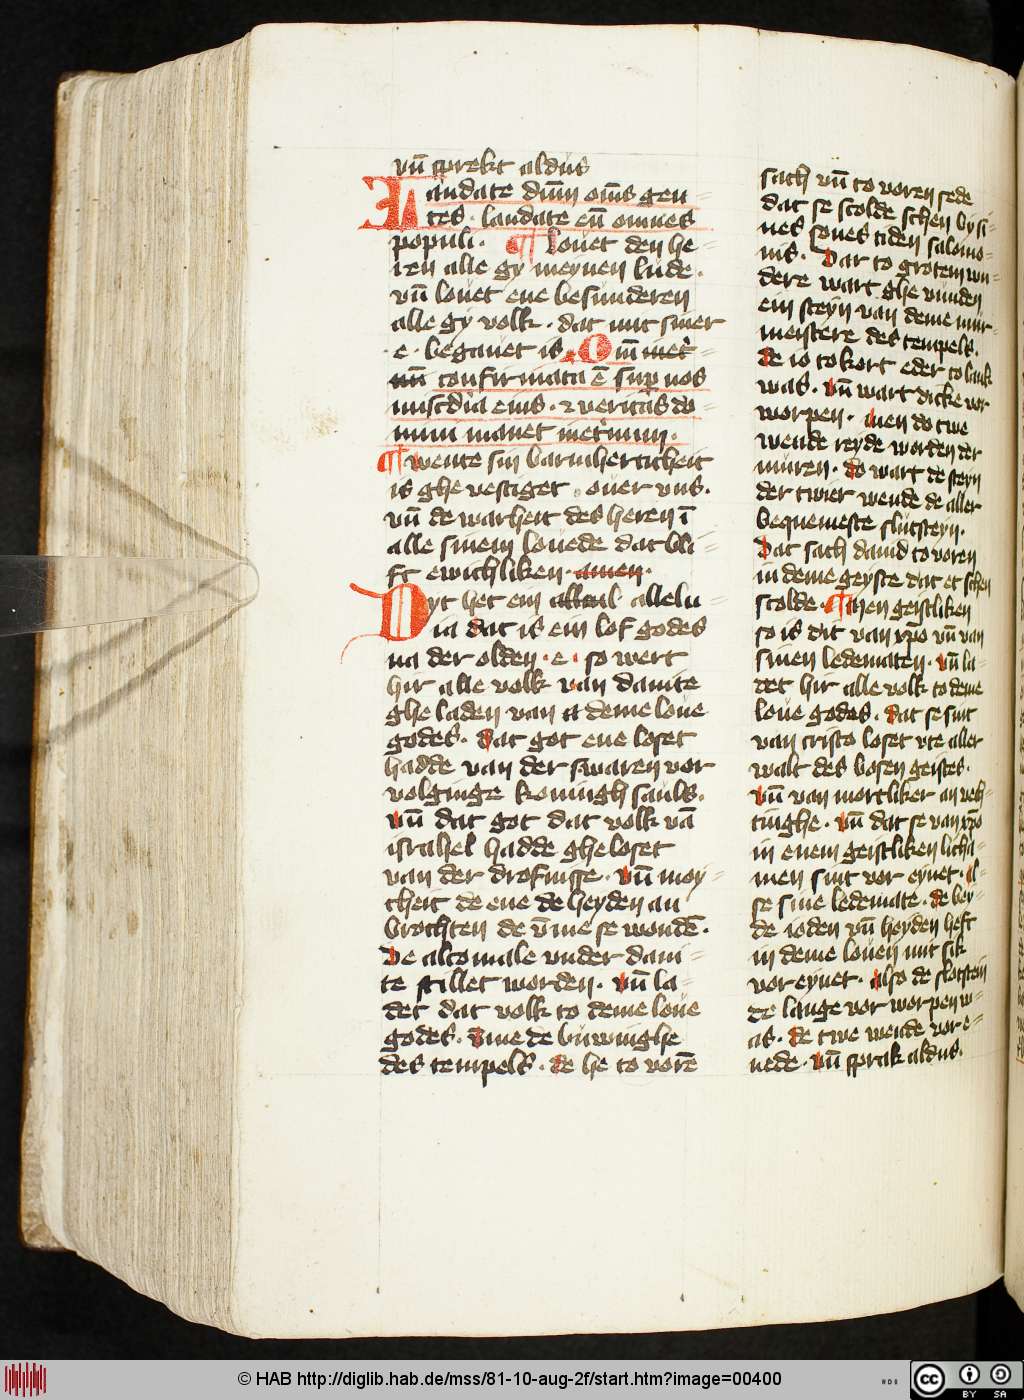 vn̄ sprekt aldus
Laudate dn̄m om̄s gen-
tes. laudate eū omnes
populi. ¶ louet den he-
ren alle gy meynen lude.
vn̄ louet ene besunderen
alle gy volk. dat mit siner
.e. begauet is. Om̄ met-
nū confirmata ē sup̄ nos
misc̄dia eius. ⁊ veritas do-
mini manet
¶ wente sin barmherticheit
is ghe vestiget. ouer vns.
vn̄ de warheit des heren ī
alle sinem louede dat bli-
ft ewichliken. amen.
Dyt het ein alleluil allelu
ia dat is ein lof godes
na der olden .e. so wert
hir alle volk van dauite
ghe laden van tt deme loue
godes. dat got ene loset
hadde van der swaren vor
volginge koningh sauls.
vn̄ dat got dat volk vā
israhel hadde ghe loset
van der drofnisse. vn̄ moy
cheit de ene de heyden an
brochten de v̄me se wondē.
De altomale vnder daui-
te stillet worden. vn̄ la-
det dat volk to deme loue
godes. vme de buwinghe
des tempels. de he to vorē
sach vn̄ to voren sede
dat se scolde schen by si-
nes sones tiden salomo-
nis. Dar to grotem wu-
dere wart ghe vunden
ein steyn van deme mur-
meistere des tempels.
de io to kort eder to lank
was. vn̄ wart dicke vor
worpen. men do twe
wende reyde worden der
muren. do wart de steyn
der twier wende de aller
bequemeste slutsteyn.
Dat sach dauid to voren
in deme geyste dat et schen
scolde. ¶ men geistliken
so is dit van xp̄o vn̄ van
sinen ledematen. vn̄ la-
det hir alle volk to deme
loue godes. dat se sint
van cristo loset vte aller
walt des bosen geistes.
vn̄ van mortliker an veh-
tinghe. vn̄ dat se van xp̄o
in enem geistliken licha-
men sint vor eynet. al-
se sine ledemate. de bey-
de ioden vn̄ heyden heft
in deme louen mit sik
vor eynet. also de slotstein
de lange vor worpen w-
as. de twe wende vor e-
nede. vn̄ sprak aldus.
© HAB http://diglib.hab.de/mss/81-10-aug-2f/start.htm?image=00400
HAB
CC BY SA